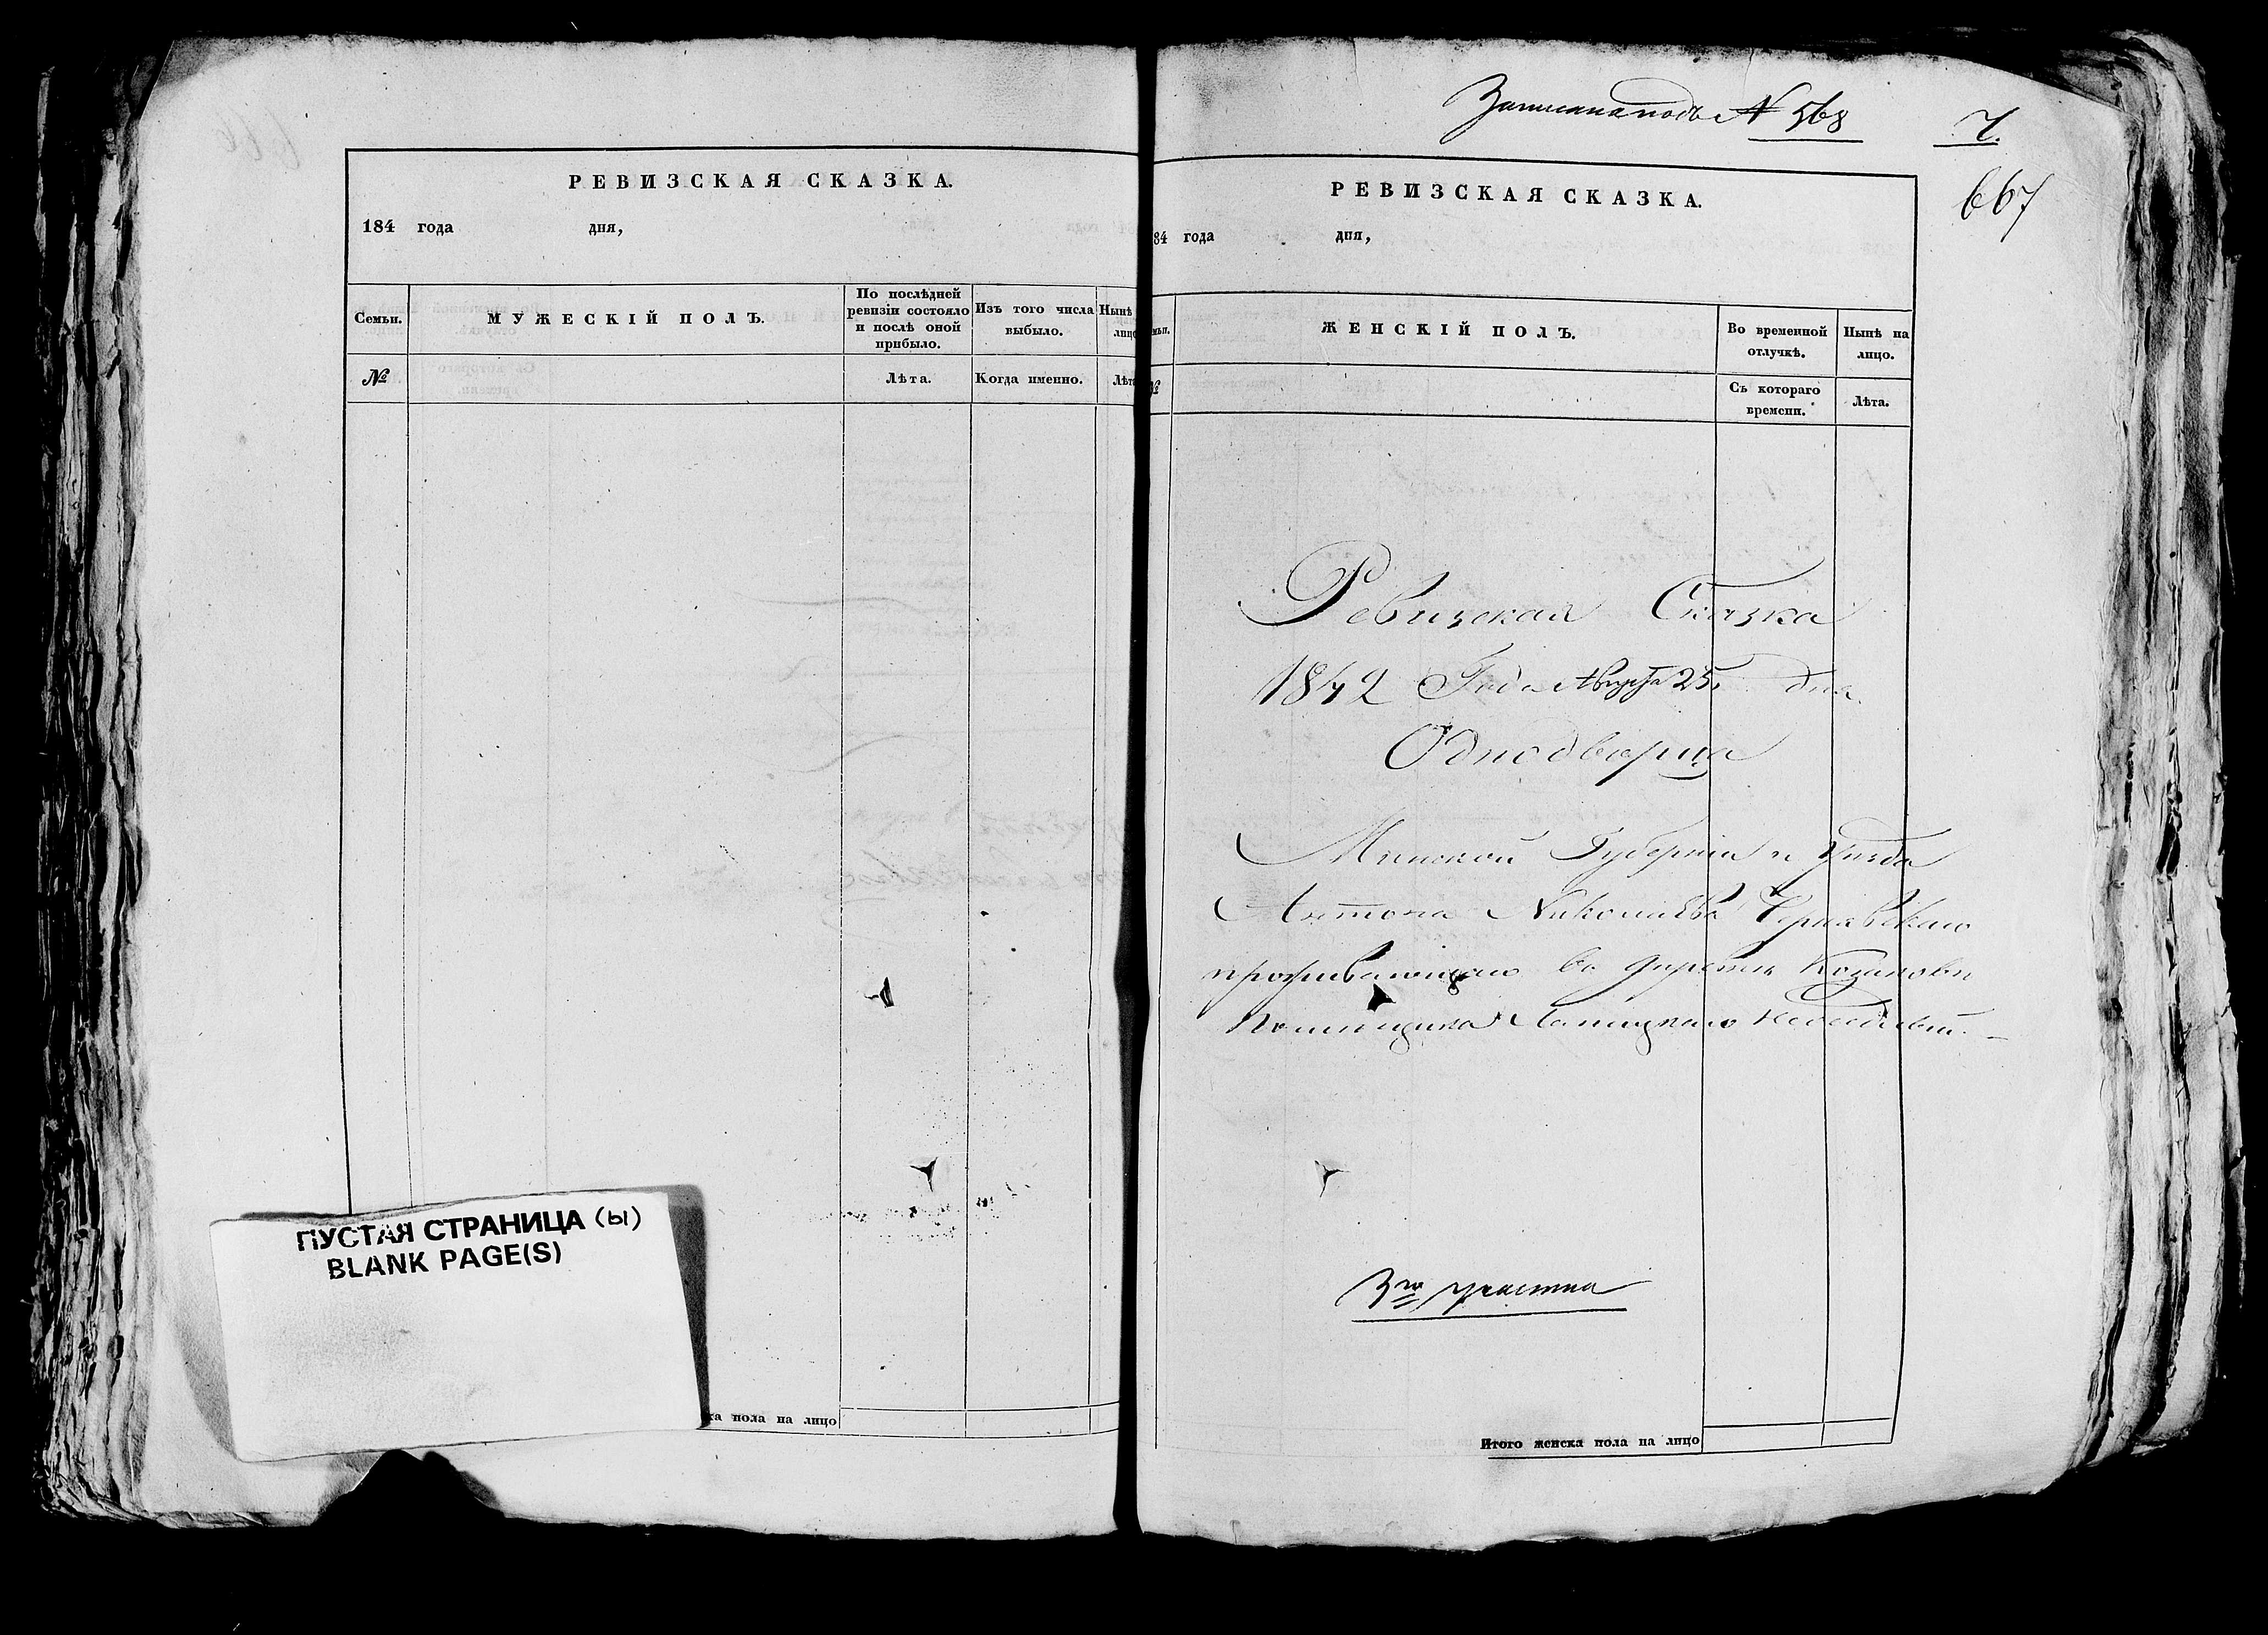 РЕВИЗСКАЯ СКАЗКА.
184 года дня,
Семьи.
МУЖЕСКІЙ ПОЛЪ.
По послѣдней
ревизіи состояло
и послѣ оной
прибыло.
Изъ того числа
выбыло.
Нынѣ
лицо
№
Лѣта.
Когда именно.
Лѣта
ПУСТАЯ СТРАНИЦА (ы)
BLANK PAGE(S)
ка пола на лицо
Записана подъ № 568
7.
667
РЕВИЗСКАЯ СКАЗКА.
84 года дня,
мьи.
ЖЕНСКІЙ ПОЛЪ.
Во временной
отлучкѣ.
Нынѣ на
лицо.
№
Съ котораго
времени.
Лѣта.
Ревизская Сказка
1842 Года Августа 25 дня
Однодворца
Минской Губерніи и Уѣзда
Антона Николаева Чернявскаго
проживающаго въ деревни
Помещика
3го участка
Итого женска пола на лицо